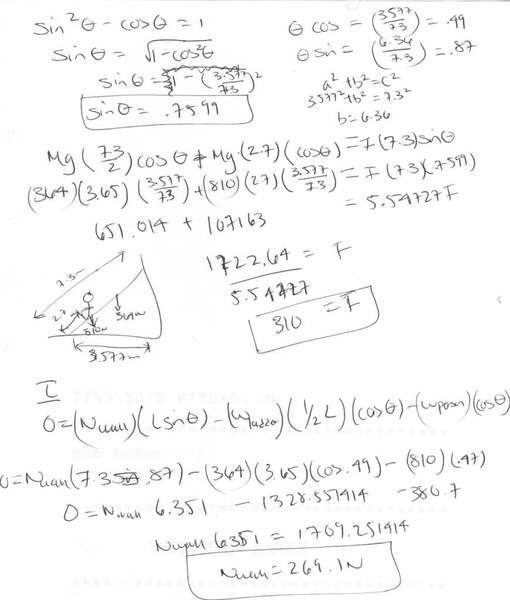 sin²θ - cosθ = 1
sinθ = √1-cos²θ
sinθ = 1 - (3.577/7.3)²
sinθ = .7599
θ cos = (3577/73) = .49
θ sin = (6.36/7.3) = .87
a² + b² = c²
3577² + b² = 7.3²
b = 6.36
Mg (7.3/2) cosθ + Mg·(2.7)(cosθ) = F(7.3)sinθ
(364)(3.65)(3.577/73) + (810)(27)(3.577/73) = F(73)(.7599)
651.014 + 107163 = 5.54727F
1722.64/5.54727 = F
310 = F
7.3m
2.7
810N
364N
3.577m
I
0 = (Nwall)(L sinθ) - (Wladder)(1/2 L)(cosθ) - (Wperson)(cosθ)
0 = Nwall(7.3 .87) - (364)(3.65)(cos .49) - (810)(.47)
0 = Nwall 6.351 - 1328.551414 - 380.7
Nwall 6.351 = 1709.251414
Nwall = 269.1N